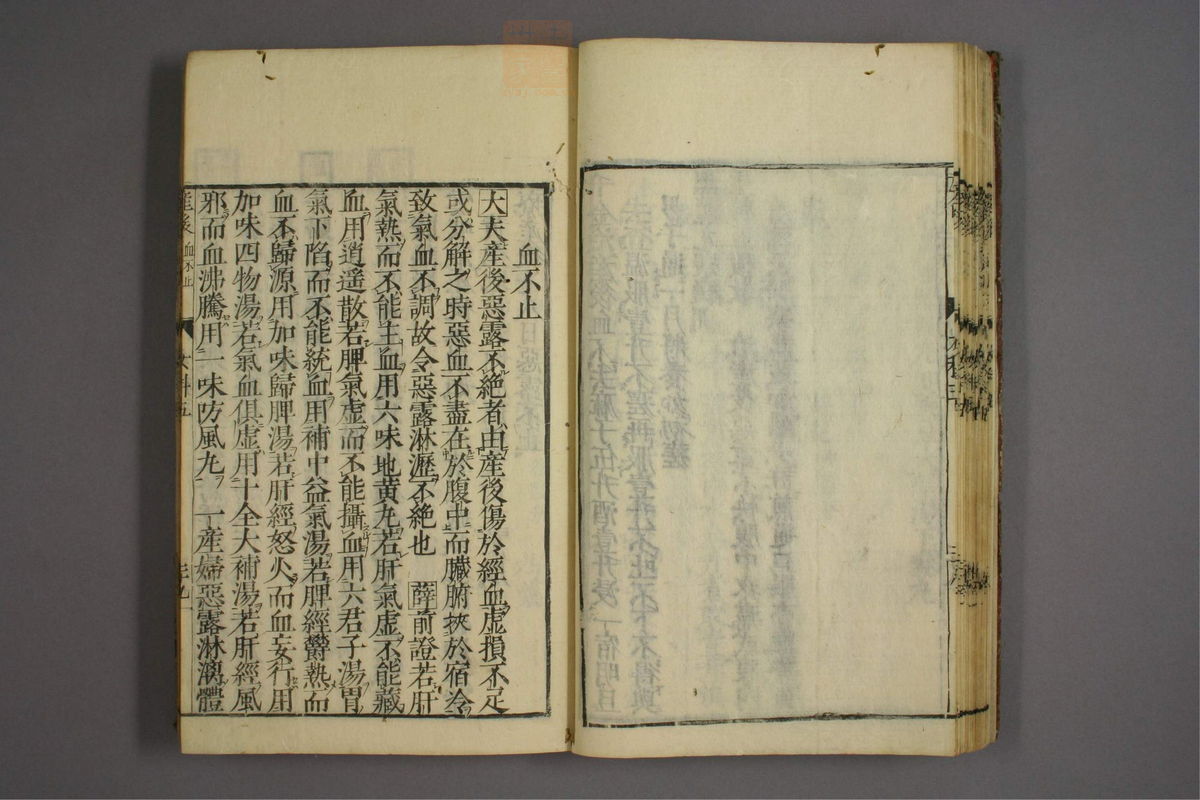 血不止
大夫產後惡露不絶者由產後傷於經血虛損不足
或分解之時惡血不盡在於腹中而臓腑挾於宿冷
致氣血不調故令惡露淋瀝不絶也 薛前證若肝
氣熱而不能主血用六味地黃丸若肝氣虛不能藏
血用逍遙散若脾氣虛而不能攝血用六君子湯胃
氣下陷而不能統血用補中益氣湯若脾經鬱熱而
血不歸源用加味歸脾湯若肝經怒火而血妄行用
加味四物湯若氣血俱虛用十全大補湯若肝經風
邪而血沸騰用一味防風丸 一產婦惡露淋漓體
產後 血不止
女科五